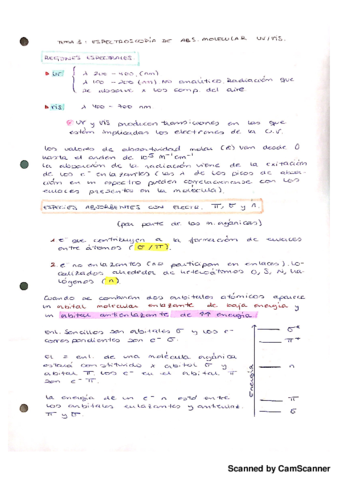 TEMA 1: ESPECTROSCOPÍA DE ABS. MOLECULAR UV/VIS.
REGIONES ESPECTRALES
UV λ 200 - 400 (nm)
λ 10 - 200 (nm) No analítico. Radiación que se absorve x los comp del aire
VIS λ 400 - 700 nm.
UV y VIS producen transiciones en las que
están implicadas los electrones de la
Los valores de absortividad molar (ε) van desde 0
hasta el orden de 10⁵ M⁻¹ cm⁻¹
La absorción de la radiación viene de la exitación
de los e⁻ enlazantes (las λ de los picos de absor-
ción en un espectro pueden correlacionarse con los
enlaces presentes en la molécula).
ESPECIES ABSORBENTES CON ELECTR. π, σ y n.
(por parte de los n. orgánicas)
1. e⁻ que contribuyen a la formación de enlaces
entre átomos (σ/π).
2. e⁻ no enlazantes (no participan en enlaces). Lo-
calizados alrededor de heteroátomos O, S, N, ha-
lógenos (n)
Cuando se combinan dos orbitales atómicos aparece
un orbital molecular enlazante de baja energía y
un orbital antienlazante de ↑↑ energía
Enl. sencillos son orbitales σ y los e⁻
correspondientes son e⁻ σ.
El = enl. de una molécula orgánica
estará constituido x orbital σ y
orbital π. Los e⁻ en el orbital π
son e⁻ π.
La energía de un e⁻ n está entre
los orbitales enlazantes y antienlaz.
π y σ
energía
σ*
π*
n
π
σ
Scanned by CamScanner